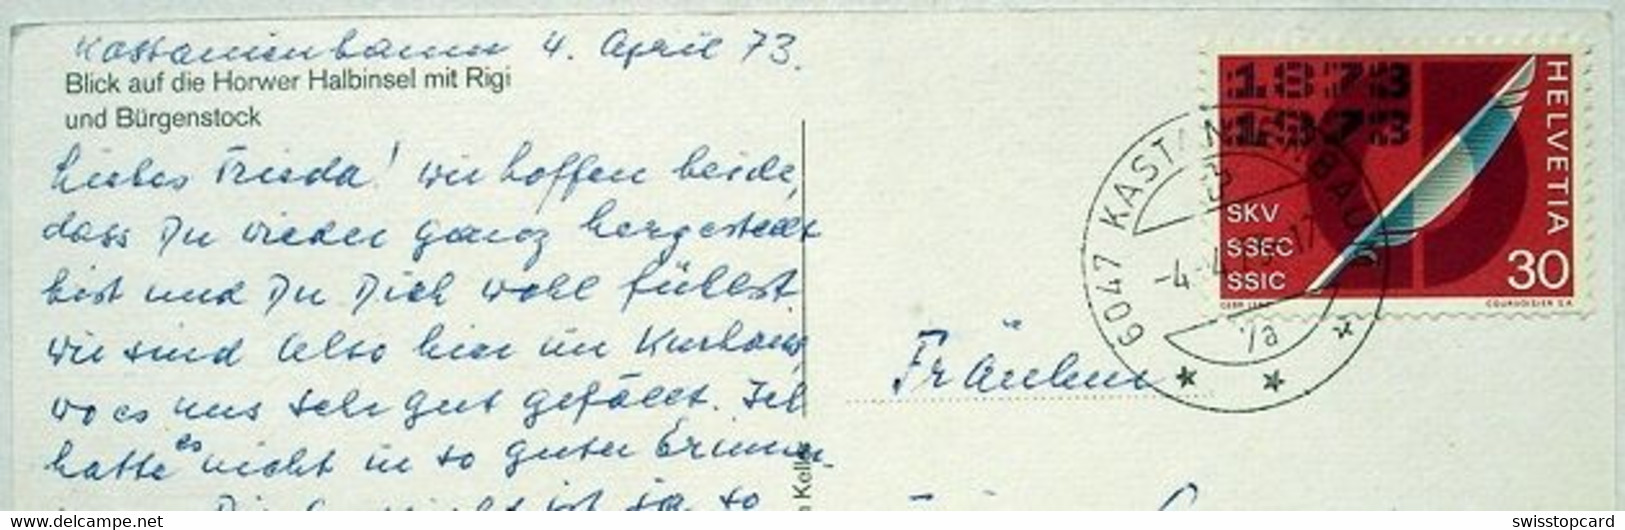 Kastanienbaum 4. April 73.
Blick auf die Horwer Halbinsel mit Rigi
und Bürgenstock
Liebes Frieda! wir hoffen beide,
dass Du wieder ganz hergestellt
bist und Du Dich wohl fühlst
wir sind also hier im Kurhaus,
wo es uns sehr gut gefällt. Ich
hatte es nicht in so guter Erinner-
ist ja so
Keller
1873
1973
HELVETIA
SKV
SSEC
SSIC
30
COURVOISIER S.A.
6047 KASTANIENBAUM
-4.-4.
Fräulein
www.delcampe.net
swisstopcard